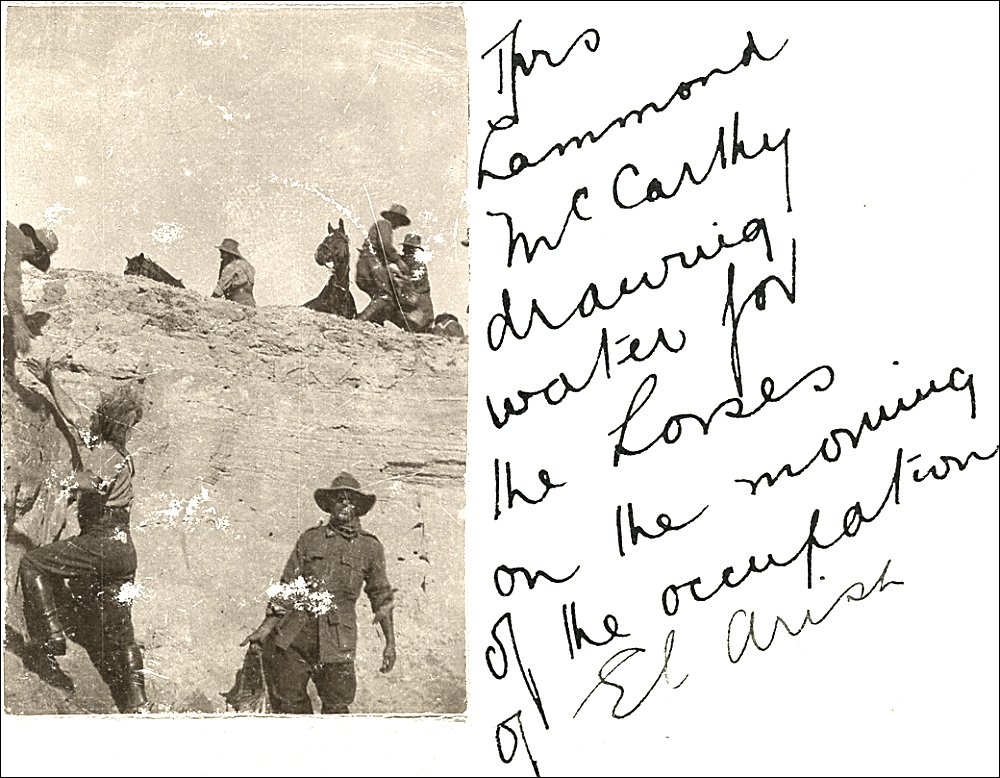 Tprs
Lammond
McCarthy
drawing
water for
the horses
on the morning
of the occupation
of El Arish